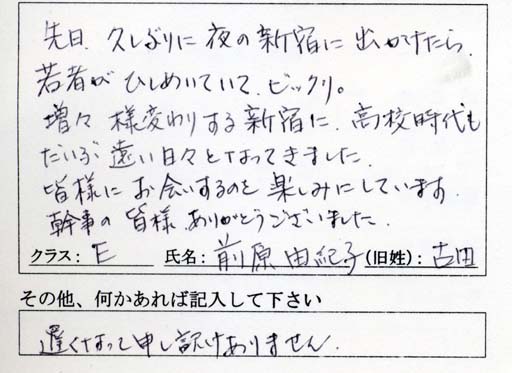 先日、久しぶりに夜の新宿に出かけたら、
若者がひしめいていて、ビックリ。
増々様変わりする新宿に、高校時代も
だいぶ遠い日々となってきました。
皆様にお会いするのを楽しみにしています。
幹事の皆様、ありがとうございました。
クラス: E 氏名: 前原由紀子 (旧姓): 古田
その他、何かあれば記入して下さい
遅くなって申し訳ありません。